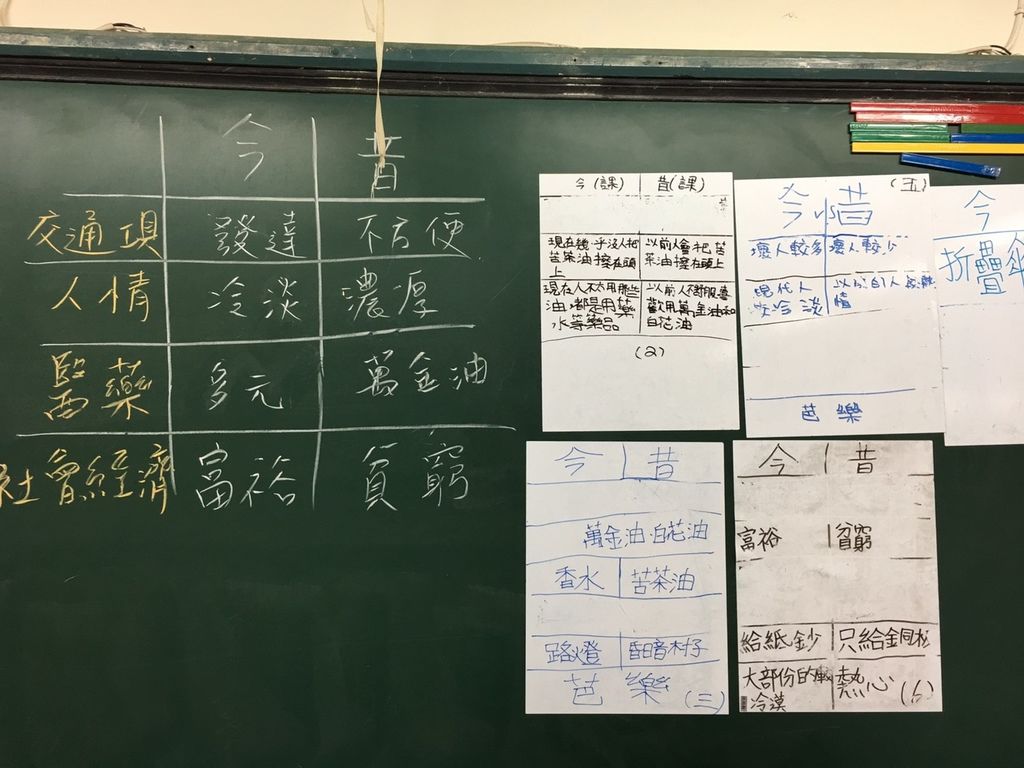 今 昔
交通工具 發達 不方便
人情 冷淡 濃厚
醫藥 多元 萬金油
社會經濟 富裕 貧窮
今(課) 昔(課)
現在幾乎沒人把 以前人會把苦
苦茶油擦在頭 茶油擦在頭上
上
現在人不太用那些 以前人不舒服喜
油,都是用藥 歡用萬金油和
水等藥品 白花油
(2)
(五)
今 昔
壞人較多 壞人較少
現代人 以前人
冷淡 情
芭樂
今
折疊傘
今 昔
萬金油.白花油
香水 苦茶油
路燈 昏暗村子
芭樂 (三)
今 昔
富裕 貧窮
給紙鈔 只給金同板
大部份的 熱心
冷漠